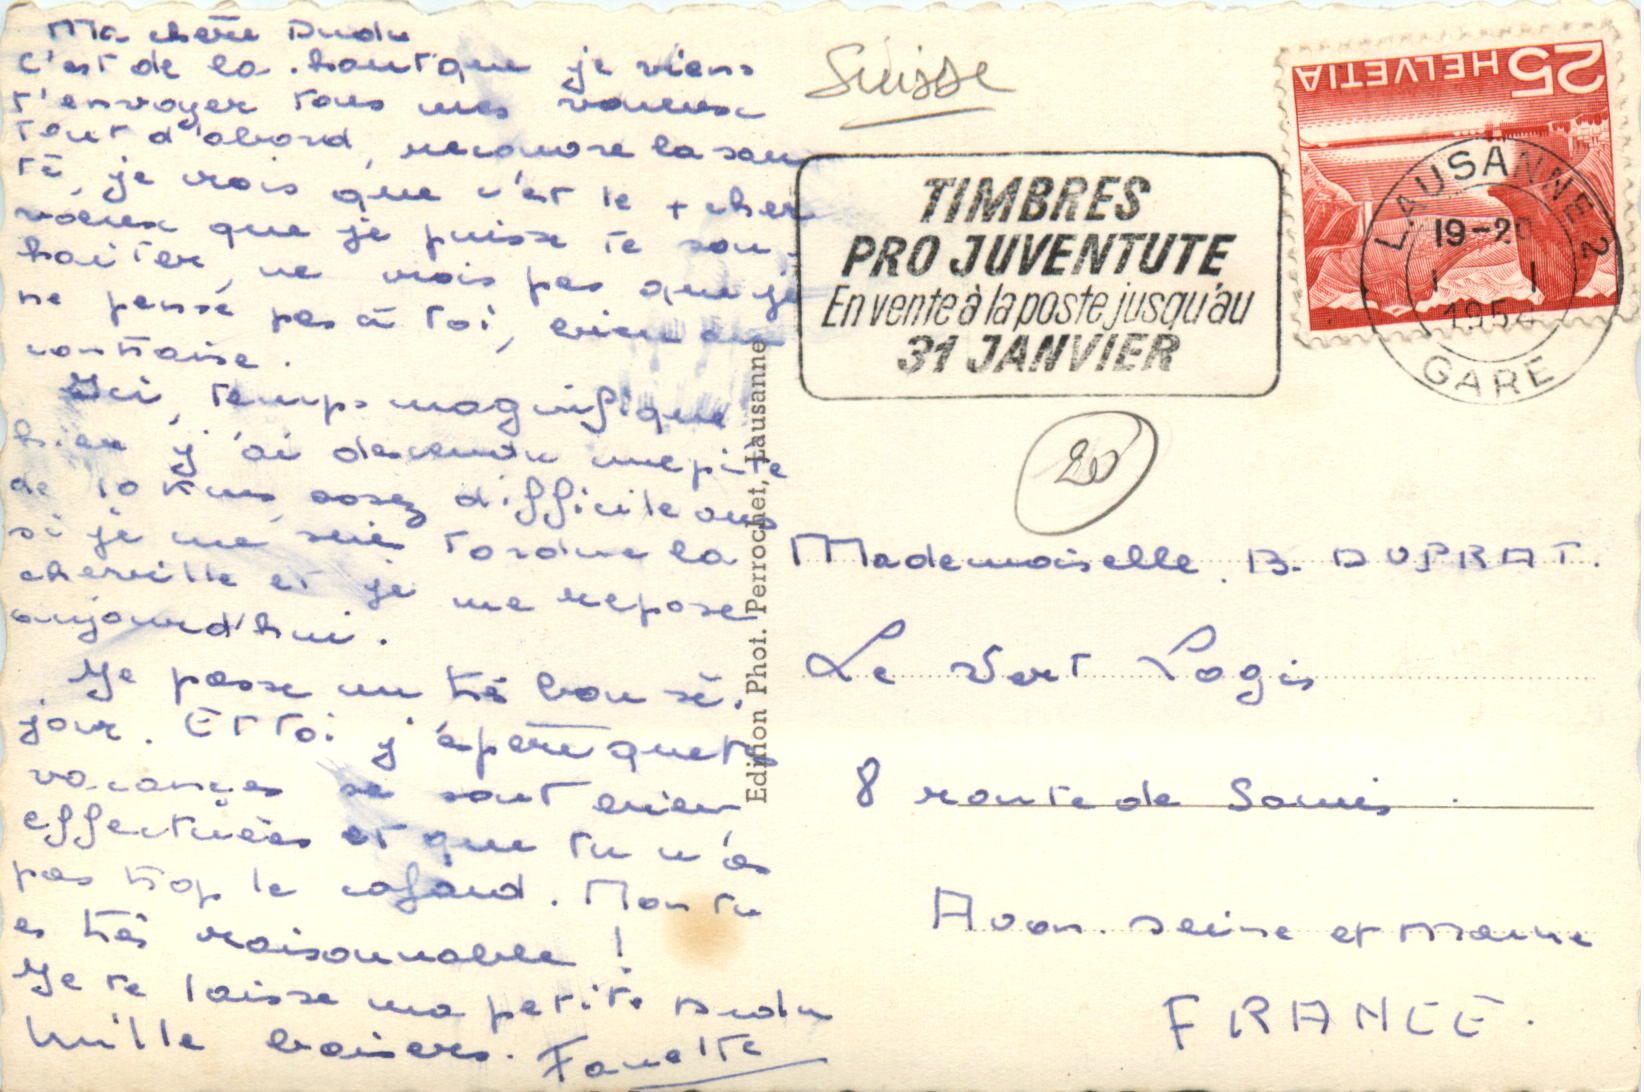 Ma chère Dudu
C'est de la haut que je viens
t'envoyer tous mes voeux
Tout d'abord, recouvre la san
té, je crois que c'est le + cher
voeux que je puisse te sou-
haiter, ne crois pas que je
ne pense pas à toi, bien au
contraire.
Ici, temps magnifique
hier j'ai descendu une piste
de 10 kms assez difficile aus
si je me suis tordue la
cheville et je me repose
aujourd'hui.
Je passe un très bon sé-
jour. Et toi j'éspère que tes
vacances se sont bien
effectuées et que tu n'as
pas trop le cafard. Mon tu
es très raisonnable !
Je te laisse ma petite Dudu
Mille baisers. Fanette
Edition Phot. Perrochet, Lausanne
Suisse
TIMBRES
PRO JUVENTUTE
En vente à la poste jusqu'au
31 JANVIER
25 HELVETIA
LAUSANNE 2
19-20
I I
GARE
20
Mademoiselle B. DUPRAT.
Le Vert Logis
8 route de Samois
Avon. Seine et Marne
FRANCE.